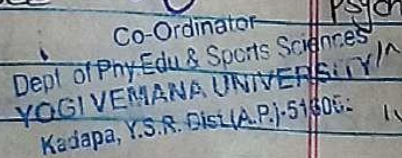 Psych
Co-Ordinator
Dept of Phy.Edu & Sports Sciences
YOGI VEMANA UNIVERSITY
Kadapa, Y.S.R. Dist (A.P.)-